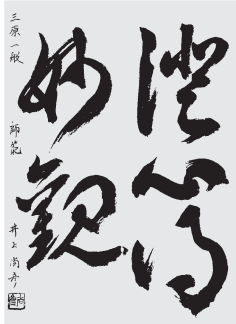 澄心得
妙觀
三原一般 師範 井上尚斉